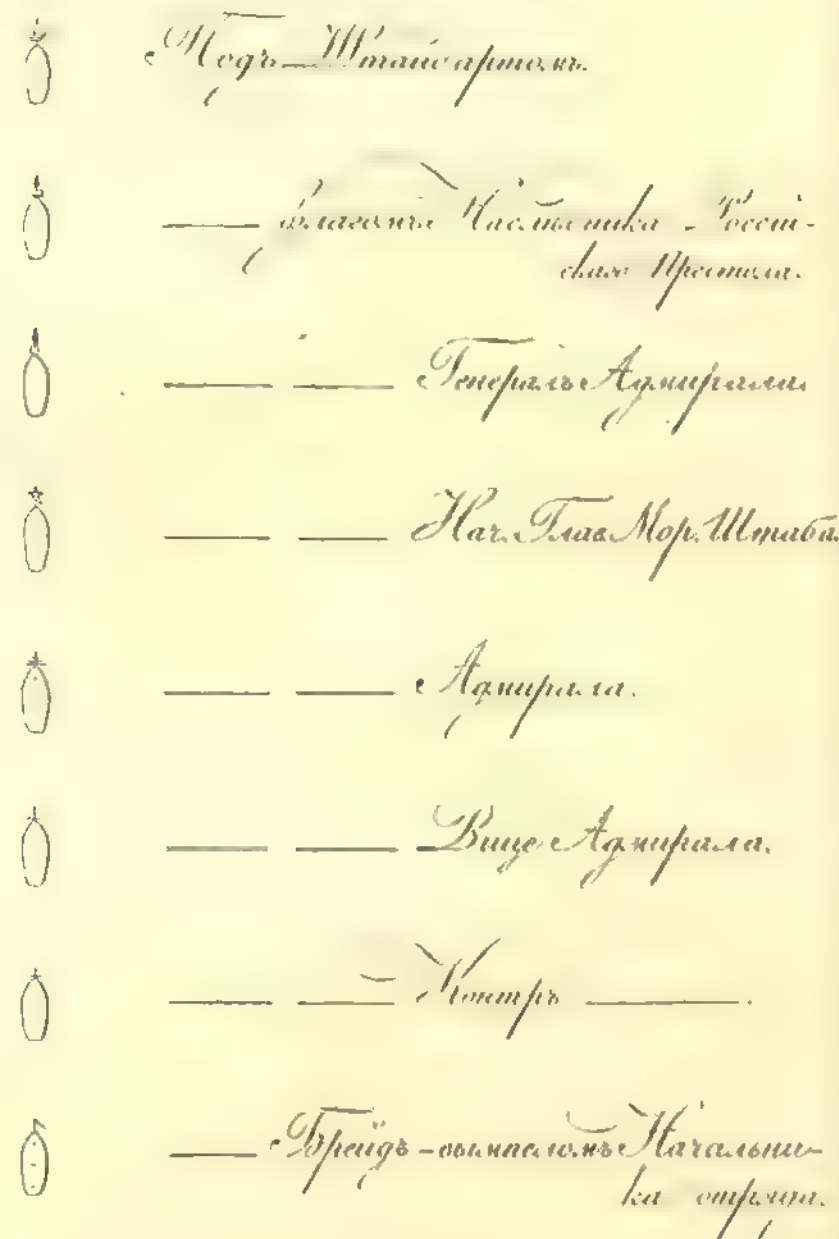 Подъ Штандартомъ.
— Флагомъ Наслѣдника Россій-
скаго Престола.
— — Генералъ Адмирала.
— — Нач. Глав. Мор. Штаба.
— — Адмирала.
— — Вице Адмирала.
— — Контръ — .
— Брейдъ-вымпеломъ Начальни-
ка отряда.